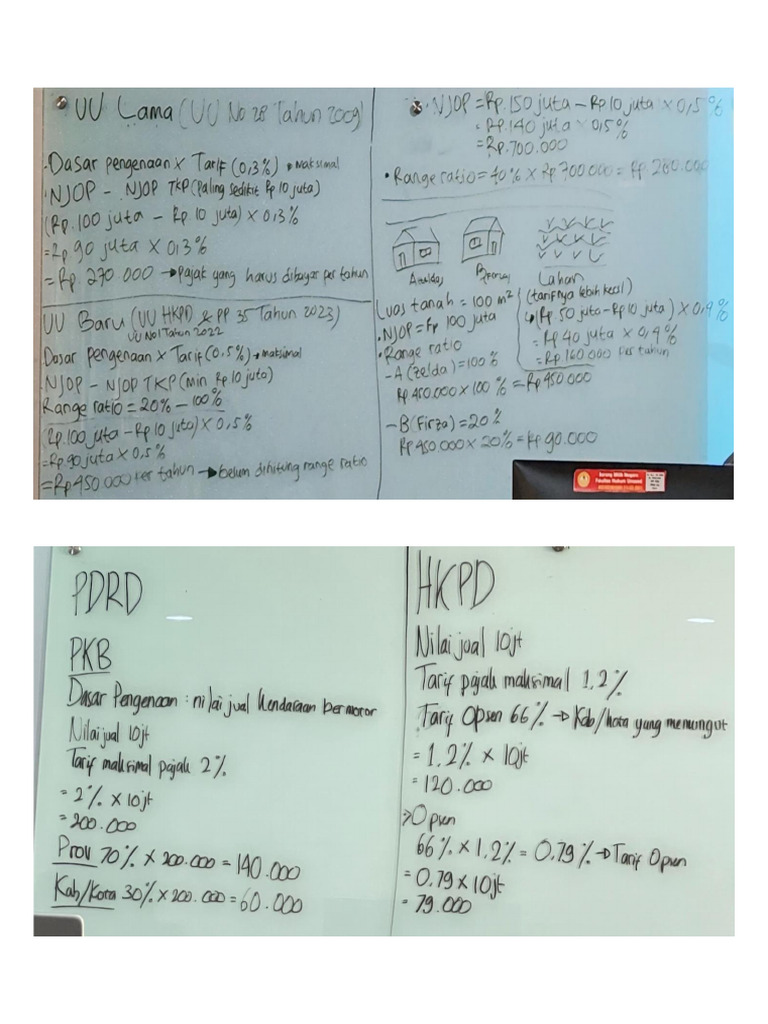 UU Lama (UU No 28 Tahun 2009)
Dasar pengenaan x Tarif (0,3%) → maksimal
NJOP - NJOP TKP (Paling sedikit Rp 10 juta)
(Rp. 100 juta - Rp 10 juta) x 0,3%
= Rp 90 juta x 0,3%
= Rp 270.000 → Pajak yang harus dibayar per tahun
UU Baru (UU HKPD & PP 35 Tahun 2023)
UU No 1 Tahun 2022
Dasar pengenaan x Tarif (0.5%) → maksimal
NJOP - NJOP TKP (min Rp 10 juta)
Range ratio = 20% - 100%
(Rp. 100 juta - Rp 10 juta) x 0,5%
= Rp 90 juta x 0.5%
= Rp 450.000 Per tahun → belum dihitung range ratio
• NJOP = Rp. 150 juta - Rp 10 juta x 0,5%
= Rp. 140 juta x 0,5%
= Rp. 700.000
• Range ratio = 40% x Rp 700.000 = Rp. 280.000
Lahan
(tarifnya lebih kecil)
(Rp. 50 juta - Rp 10 juta) x 0,4%
= Rp 40 juta x 0,4%
= Rp 160.000 Per tahun
Luas tanah = 100 m²
• NJOP = Rp 100 juta
• Range ratio
- A (Zelda) = 100%
Rp 450.000 x 100% = Rp 450.000
- B (Firza) = 20%
Rp 450.000 x 20% = Rp 90.000
Barang Milik Negara
PDRD
PKB
Dasar Pengenaan : nilai jual kendaraan bermotor
Nilai jual 10jt
Tarif maksimal pajak 2%
= 2% x 10jt
= 200.000
Prov 70% x 200.000 = 140.000
Kab/Kota 30% x 200.000 = 60.000
HKPD
Nilai jual 10jt
Tarif pajak maksimal 1,2%
Tarif Opsen 66% → Kab/kota yang memungut
= 1.2% x 10jt
= 120.000
> Opsen
66% x 1,2% = 0.79% → Tarif Opsen
= 0.79 x 10jt
= 79.000